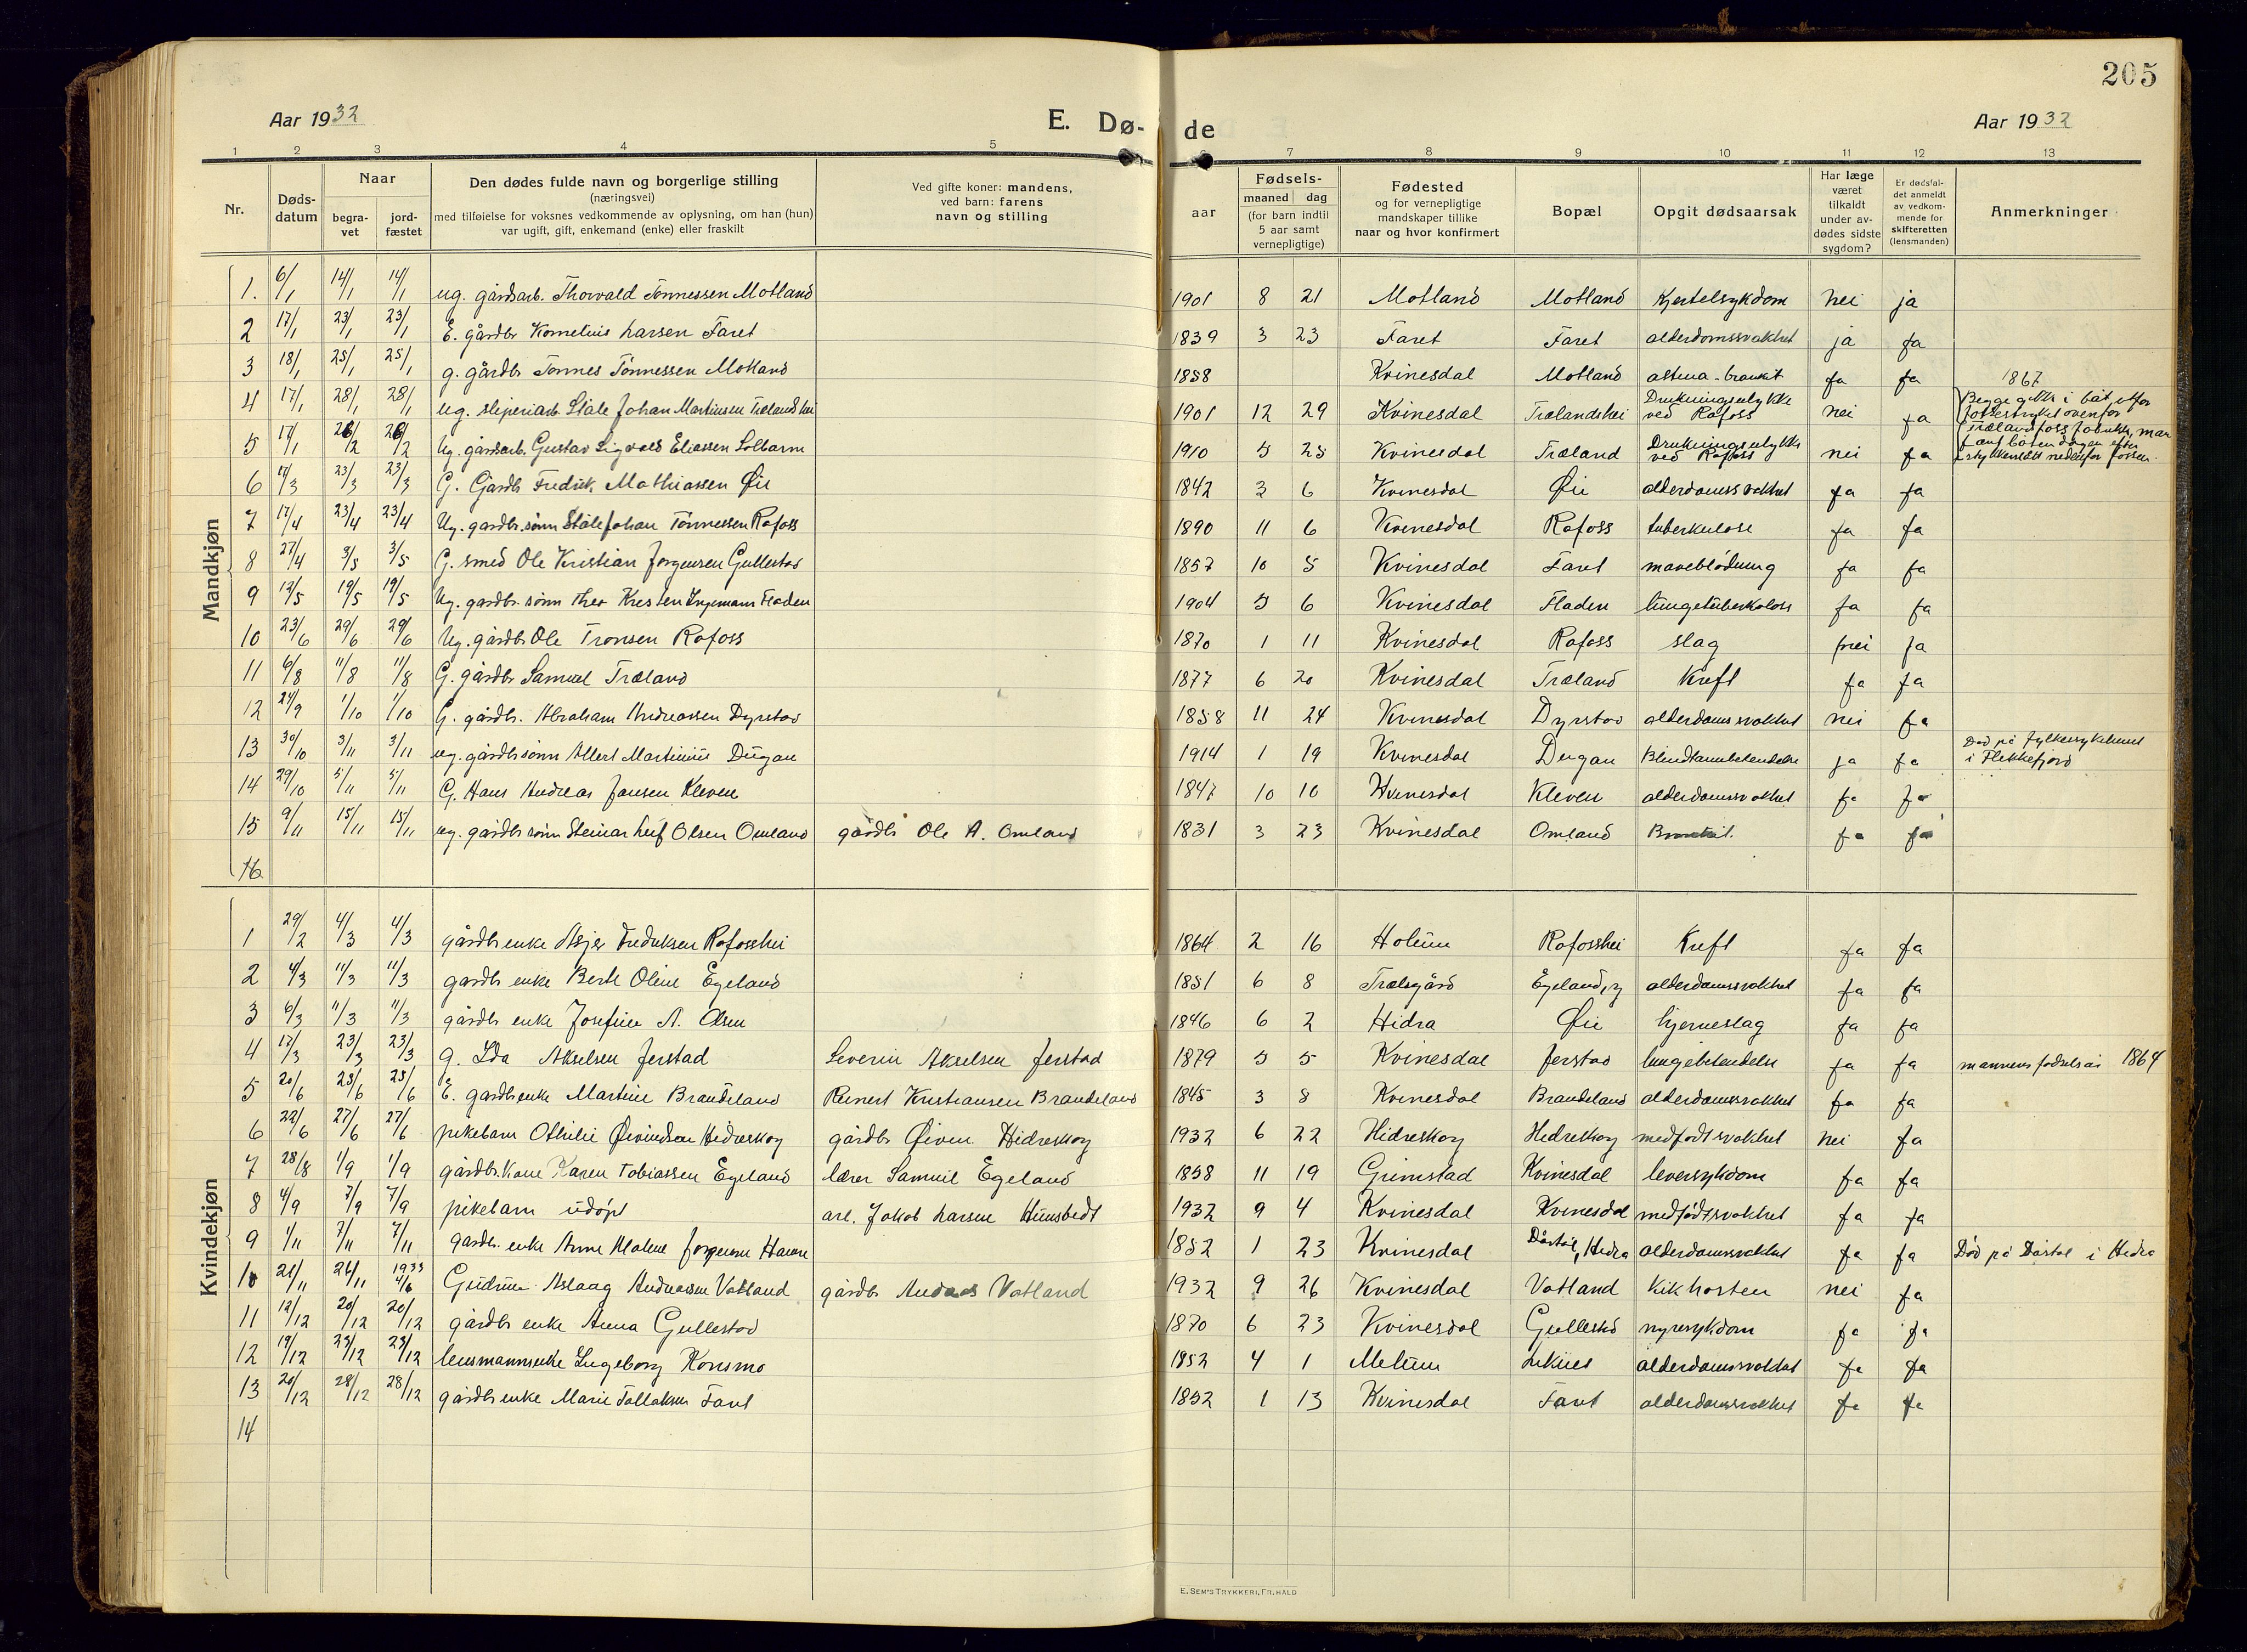 205
Aar 1932 E. Dø- de Aar 1932
1 2 3 4 5 6 7 8 9 10 11 12 13
Nr. Døds-datum Naar begra-vet jord-fæstet Den dødes fulde navn og borgerlige stilling (næringsvei) med tilføielse for voksnes vedkommende av oplysning, om han (hun) var ugift, gift, enkemand (enke) eller fraskilt Ved gifte koner: mandens, ved barn: farens navn og stilling aar Fødsels- maaned dag (for barn indtil 5 aar samt vernepligtige) Fødested og for vernepligtige mandskaper tillike naar og hvor konfirmert Bopæl Opgit dødsaarsak Har læge været tilkaldt under av-dødes sidste sygdom? Er dødsfal-det anmeldt av vedkom-mende for skifteretten (lensmanden) Anmerkninger
Mandkjøn
1. 6/1 14/1 14/1 ug. gårdsarb. Thorvald Tønnessen Motland 1901 8 21 Motland Motland Kjertelsykdom nei ja
2 17/1 23/1 23/1 E. gårdbr Kornelius Larsen Faret 1839 3 23 Faret Faret alderdomssvakhet ja ja
3 18/1 25/1 25/1 g. gårdbr Tønnes Tønnessen Motland 1858 Kvinesdal Motland astma-bronkit ja ja 1867
4 17/1 28/1 28/1 ug. sliperiarb. Ståle Johan Martinsen Trælandshei 1901 12 29 Kvinesdal Trælandshei Drukningsulykke ved Rafoss nei ja Begge gikk i båt utfor fossestryket ovenfor
5 17/1 28/2 28/2 Ug. gårdsarb. Gustav Sigvald Eliassen Solbarm 1910 5 25 Kvinesdal Træland Drukningsulykke ved Rafoss nei ja Trælandsfoss fabrikk, man fant båten dagen efter stykkeslått nedenfor fossen.
6 17/3 23/3 23/3 G. Gårdbr Fredrik Mathiassen Øie 1842 3 6 Kvinesdal Øie alderdomssvakhet ja ja
7 17/4 23/4 23/4 Ug. gardbr. sønn Ståle Johan Tønnessen Rafoss 1890 11 6 Kvinesdal Rafoss tuberkulose ja ja
8 27/4 3/5 3/5 G. smed Ole Kristian Jørgensen Gullestad 1857 10 5 Kvinesdal Faret maveblødning ja ja
9 12/5 19/5 19/5 Ug. gardbr. sønn Theo Kresten Ingemann Fladen 1904 5 6 Kvinesdal Fladen lungetuberkolos ja ja
10 23/6 29/6 29/6 Ug. gårdbr Ole Tronsen Rafoss 1870 1 11 Kvinesdal Rafoss slag nei ja
11 6/8 11/8 11/8 G. gårdbr Samuel Træland 1877 6 20 Kvinesdal Træland Kreft ja ja
12 24/9 1/10 1/10 G. gårdbr. Abraham Andreassen Dyrstad 1858 11 24 Kvinesdal Dyrstad alderdomssvakhet nei ja
13 30/10 3/11 3/11 ug. gårdbr sønn Albert Martinius Dugan 1914 1 19 Kvinesdal Dugan Blindtarmbetendelse ja ja Død på Fylkessykehuset i Flekkefjord
14 29/10 5/11 5/11 G. Hans Andreas Jansen Kleven 1847 10 10 Kvinesdal Kleven alderdomssvakhet ja ja
15 9/11 15/11 15/11 ug. gårdbr sønn Steinar Leif Olsen Omland gårdbr Ole A. Omland 1831 3 23 Kvinesdal Omland Bronkit. ja ja
16
Kvindekjøn
1 29/2 4/3 4/3 gårdbr enke Asjer Fredriksen Rafosshei 1864 2 16 Holum Rafosshei Kreft ja ja
2 4/3 11/3 11/3 gardbr enke Berte Oline Egeland 1851 6 8 Trælsgård Egeland, ry alderdomssvakhet ja ja
3 6/3 11/3 11/3 gårdbr enke Josefine A. Olsen 1846 6 2 Hidra Øie hjerneslag ja ja
4 17/3 23/3 23/3 g. Ida Akselsen Jerstad Severin Akselsen Jerstad 1879 5 5 Kvinesdal Jerstad lungebetendelse ja ja mannens fødselsår 1864
5 20/6 25/6 25/6 E. gardbr enke Martine Brandeland Reinert Kristiansen Brandeland 1845 3 8 Kvinesdal Brandeland alderdomssvakhet ja ja
6 22/6 27/6 27/6 pikebarn Othilie Øivindsen Hidreskog gårdbr Øiven Hidreskog 1932 6 22 Hidreskog Hidreskog medfødt svakhet nei ja
7 28/8 1/9 1/9 gårdbr. kone Karen Tobiassen Egeland lærer Samuel Egeland 1858 11 19 Grimstad Kvinesdal leversykdom ja ja
8 4/9 7/9 7/9 pikebarn udøpt arb. Jakob Larsen Hunsbedt 1932 9 4 Kvinesdal Kvinesdal medfødt svakhet ja ja
9 1/11 7/11 7/11 gardbr. enke Anne Malene Jørgensen Hamre 1852 1 23 Kvinesdal Dårstøl, Hidra alderdomssvakhet ja ja Død på Dårstøl i Hidra
10 21/11 26/11 1933 4/6 Gudrun Aslaug Andreassen Vatland gårdbr Andreas Vatland 1932 9 26 Kvinesdal Vatland kikhosten nei ja
11 12/12 20/12 20/12 gårdbr enke Anna Gullestad 1870 6 23 Kvinesdal Gullestad nyresykdom ja ja
12 19/12 23/12 23/12 lensmannsenke Ingeborg Konsmo 1852 4 1 Melum Leknes alderdomssvakhet ja ja
13 20/12 28/12 28/12 gårdbr enke Marie Tallaksen Faret 1852 1 13 Kvinesdal Faret alderdomssvakhet ja ja
14
E. SEM'S TRYKKERI, FR. HALD